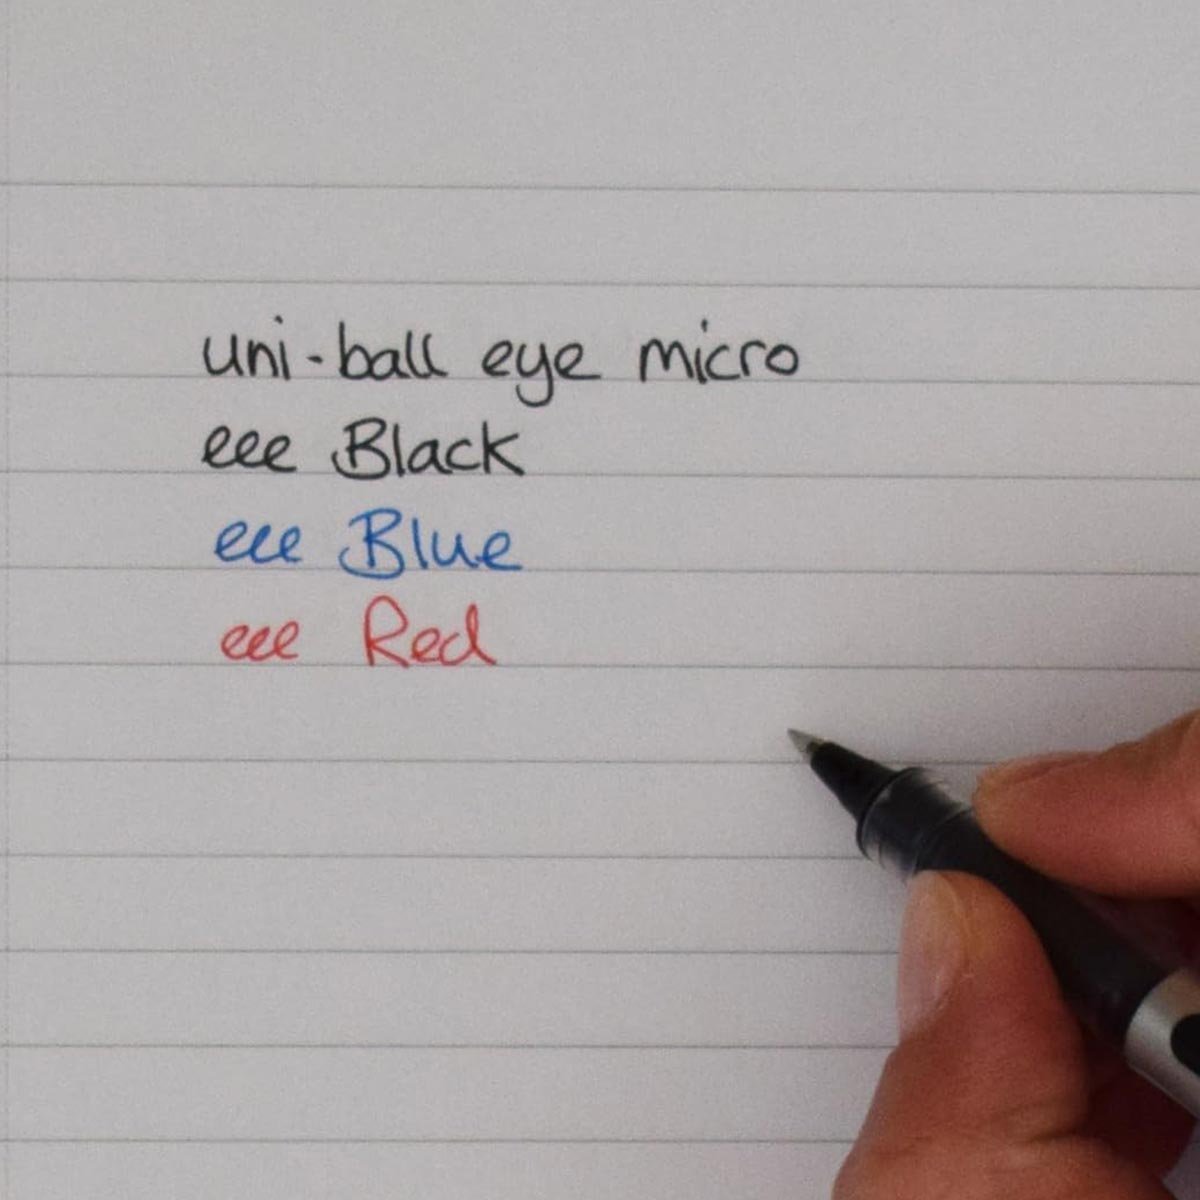 uni-ball eye micro
eee Black
eee Blue
eee Red